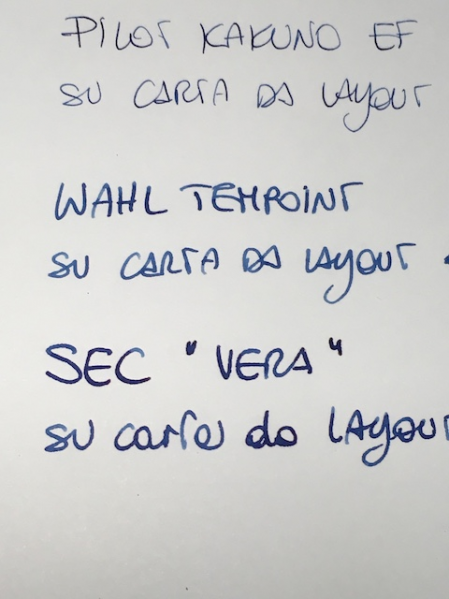 PILOT KAKUNO EF
SU CARTA DA LAYOUT
WAHL TEMPOINT
SU CARTA DA LAYOUT
SEC "VERA"
su carta da LAYOUT